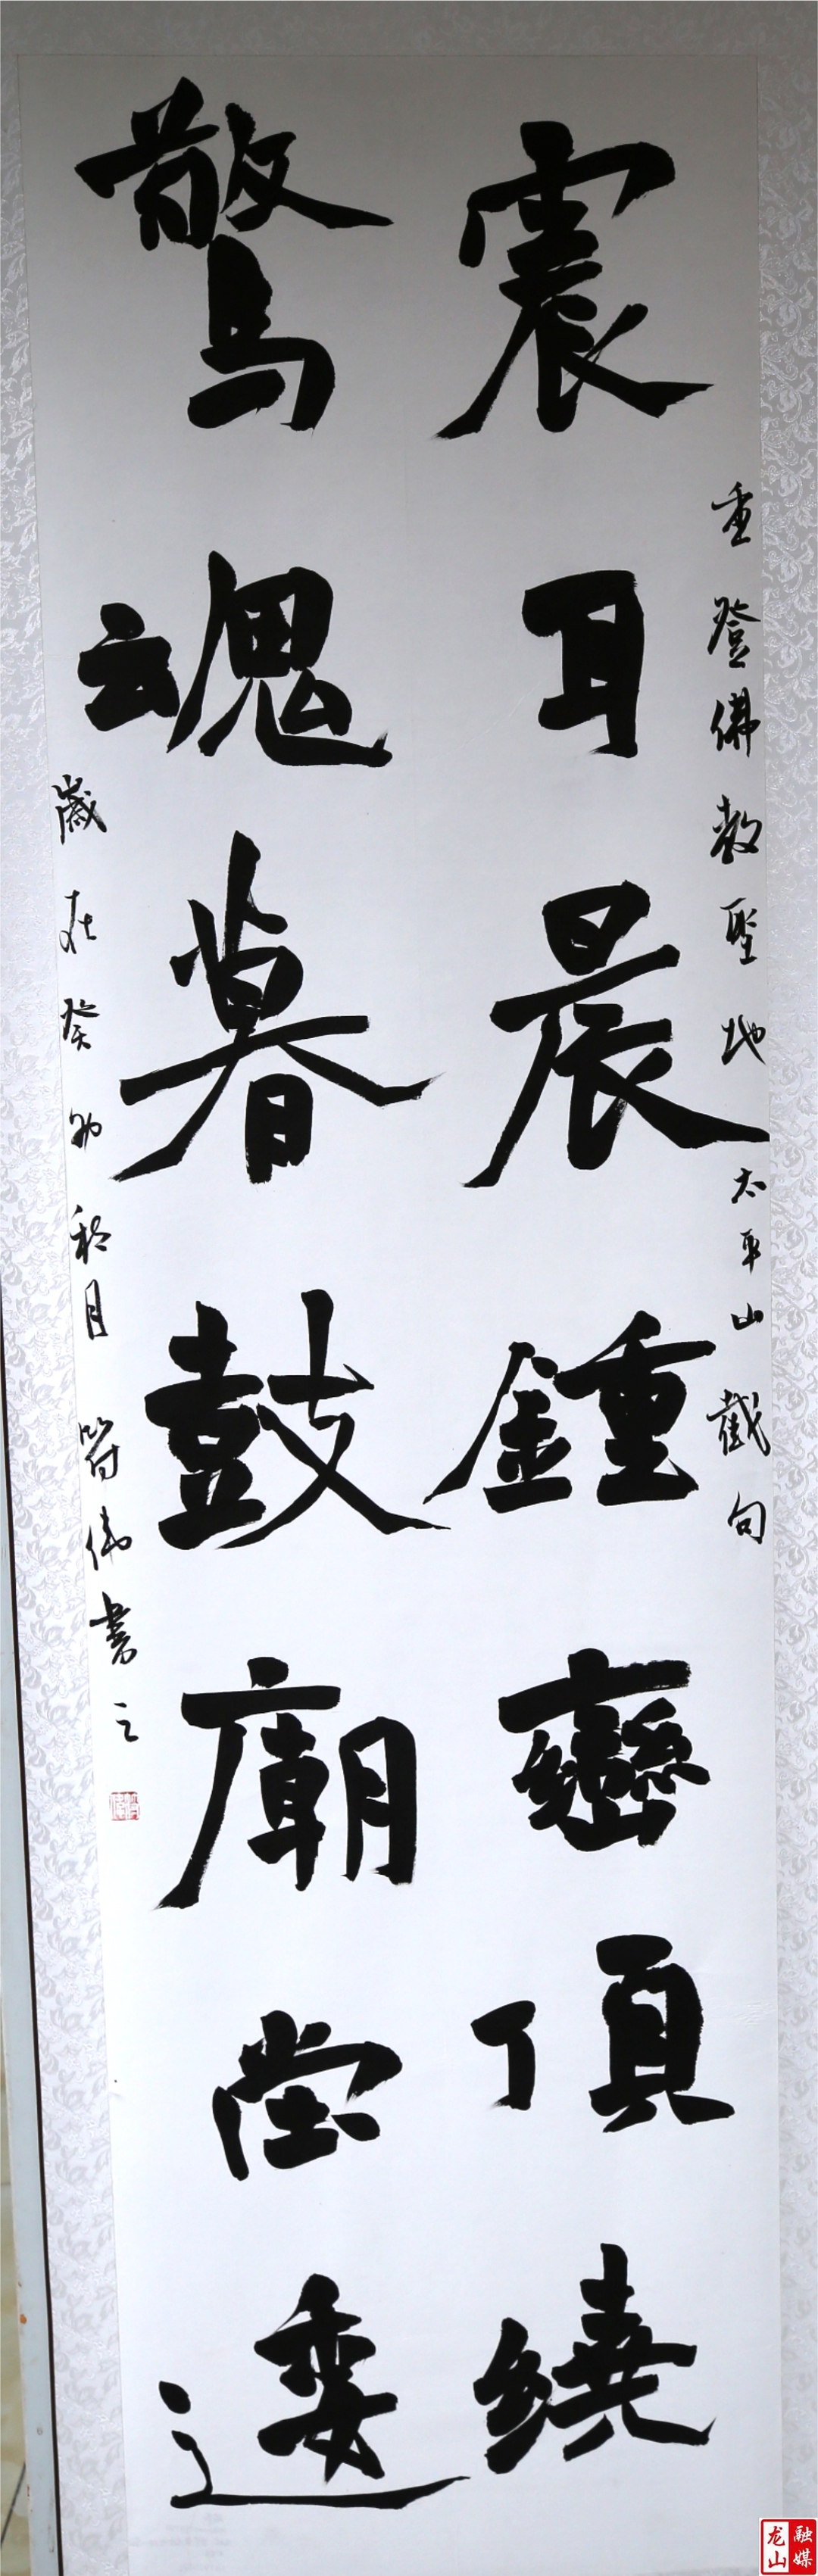 重登佛教聖地太平山截句
震耳晨鍾巒頂繞
驚魂暮鼓廟堂逶
歲在癸卯秋月符偉書之
龙山融媒